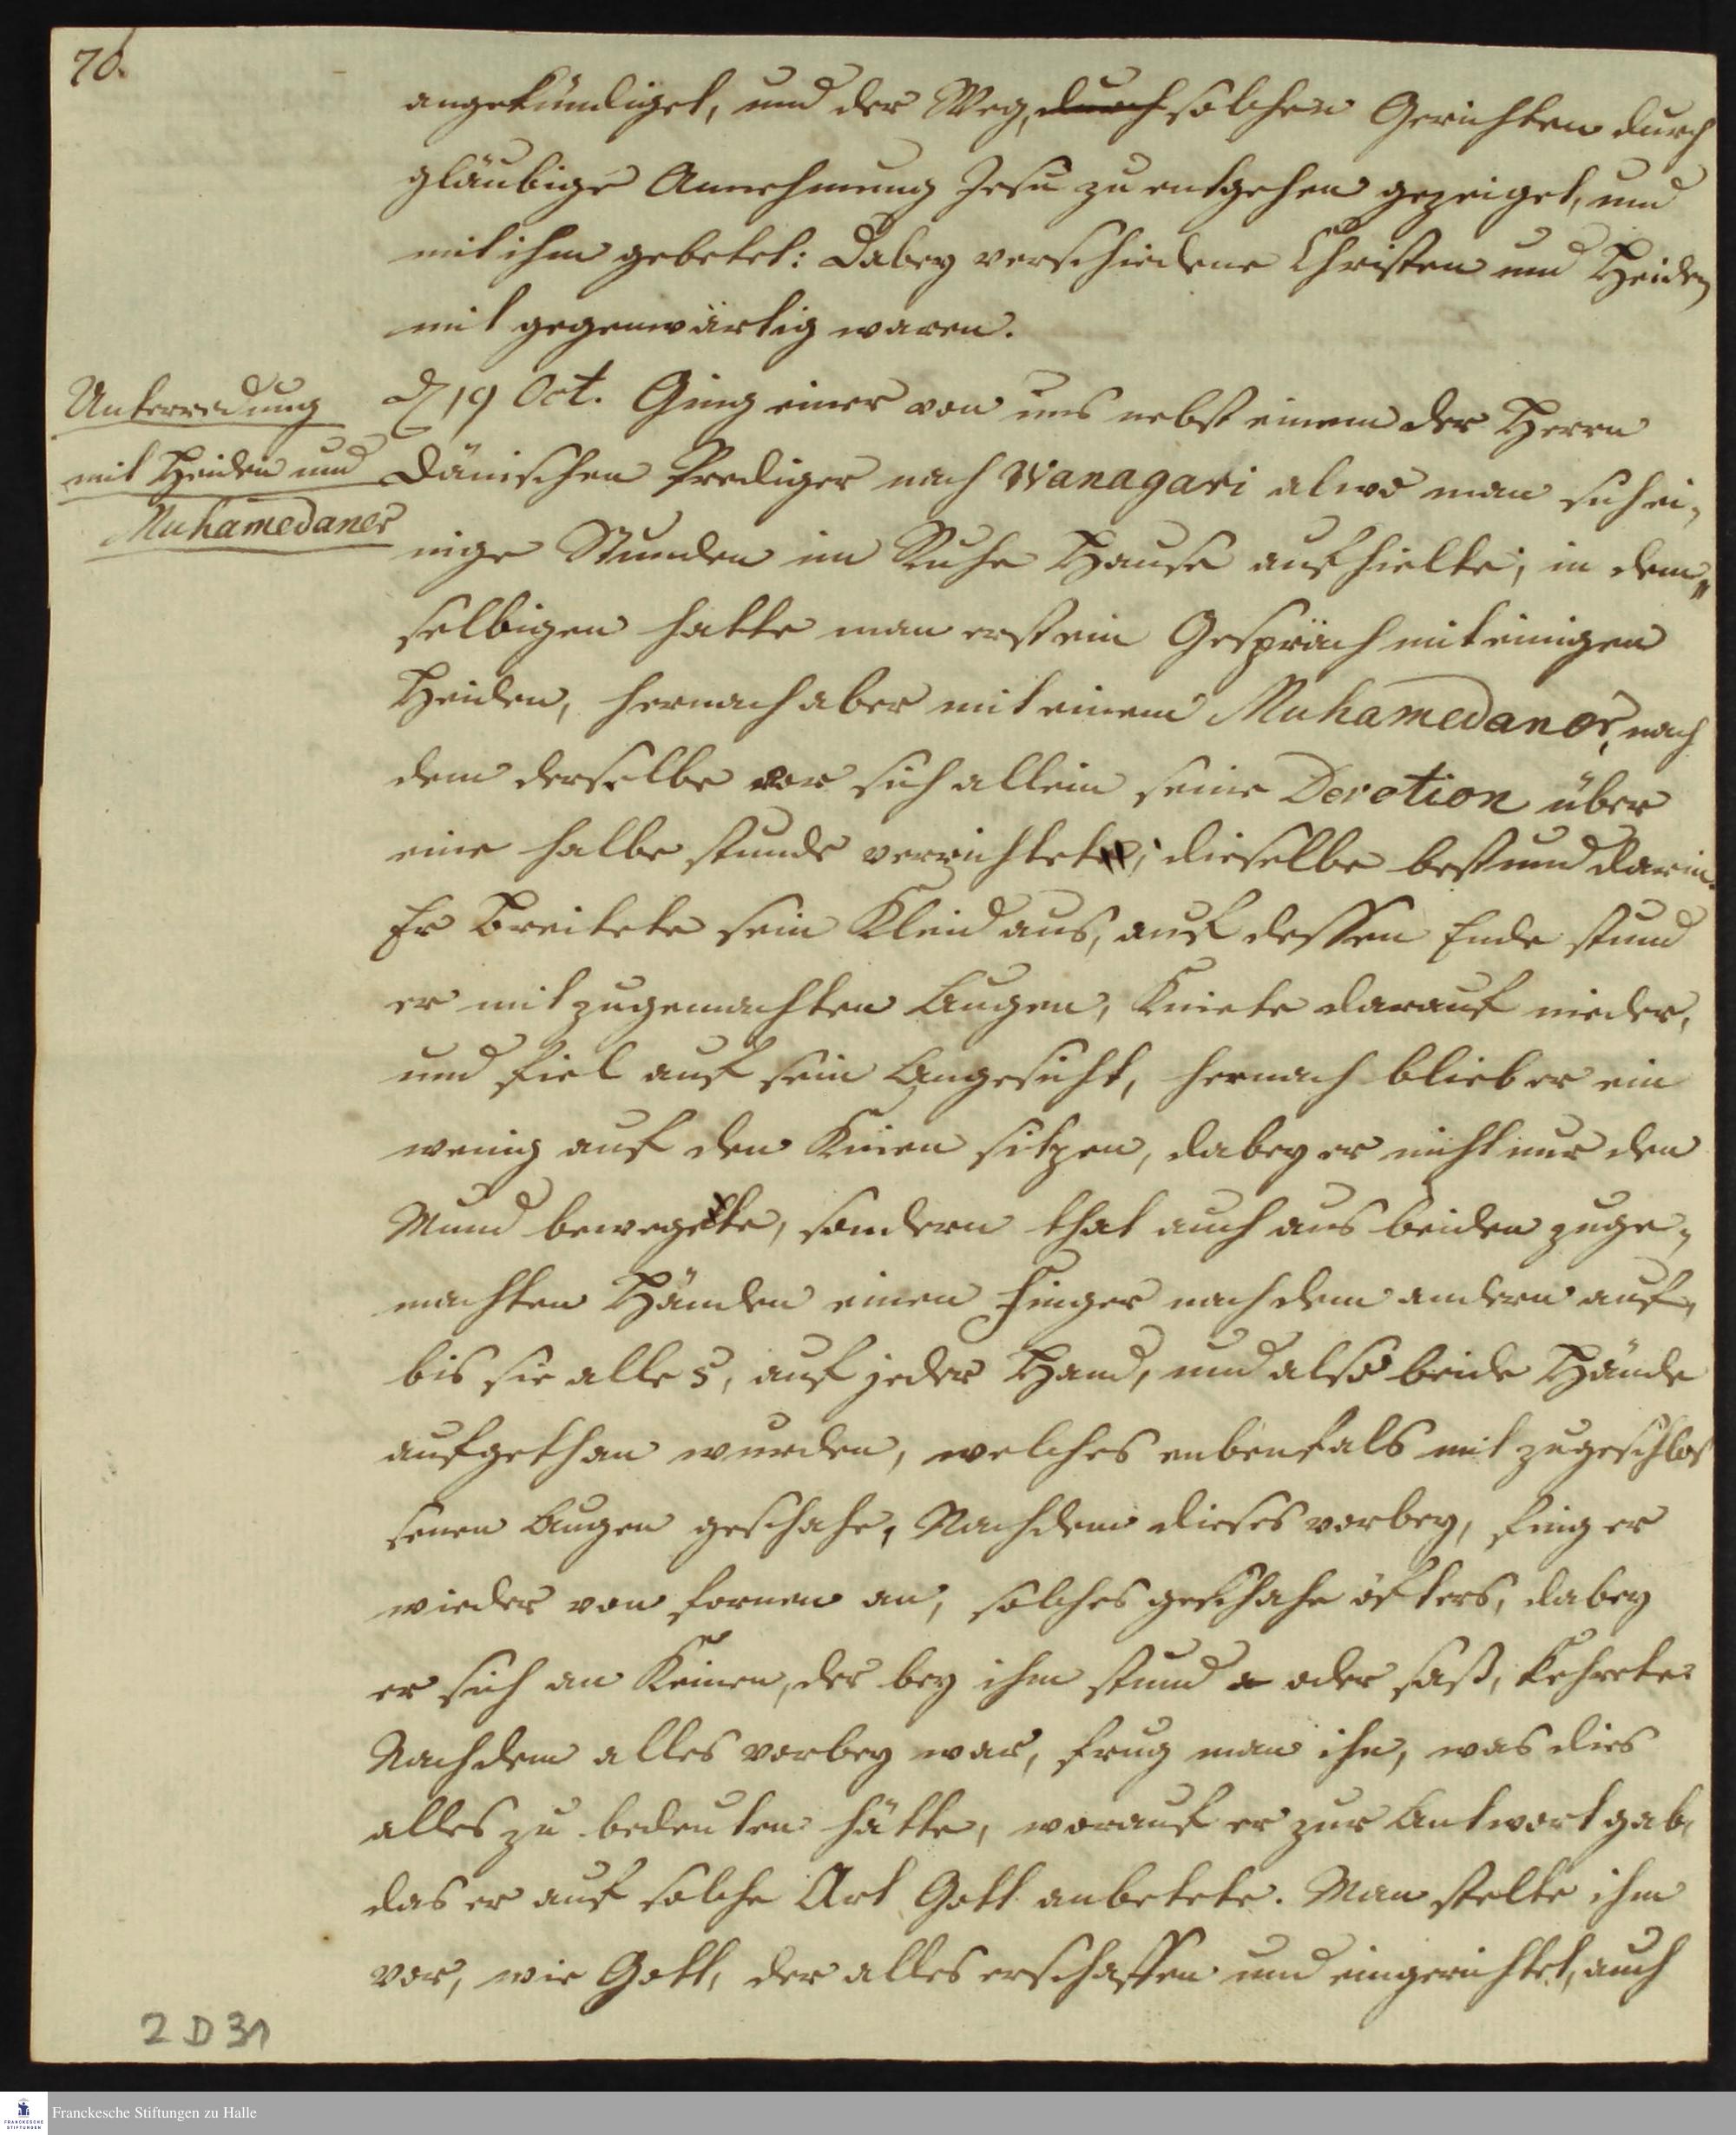 70.
angekündiget, und der Weg, durch solchen Gerichten durch
gläubige Annehmung Jesu zu entgehen gezeiget, und
mit ihm gebetet: Dabey verschiedene Christen und Heiden
mit gegenwärtig waren.
Unterredung
mit Heiden und
Muhamedaner
19 Oct. Ging einer von uns nebst einem der Herrn
Dänischen Prediger nach Wanagari alwo man sich ei-
nige Stunden im Ruhe Hause aufhielte; in dem-
selbigen hatte man erst ein Gespräch mit einigen
Heiden, hernach aber mit einem Muhamedaner, nach
dem derselbe vor sich allein seine Devotion über
eine halbe stunde verrichtet; dieselbe bestund darin.
Er breitete sein Kleid aus, auf dessen Ende stund
er mit zugemachten Augen, kniete darauf nieder,
und fiel auf sein Angesicht, hernach blieb er ein
wenig auf den Knien sitzen, dabey er nicht nur den
Mund bewegte, sondern that auch aus beiden zuge-
machten Händen einen Finger nach dem andern auf,
bis sie alle 5, auf jeder Hand, und also beide Hände
aufgethan wurden, welches enbenfals mit zugeschlos
senen Augen geschahe, Nachdem dieses vorbey, fing er
wieder von fornen an, solches geschahe öfters, dabey
er sich an Keinen, der bey ihm stund oder saß, kehrete.
Nachdem alles vorbey war, frug man ihn, was dies
alles zu bedeuten hätte, worauf er zur Antwort gab,
das er auf solche Art Gott anbetete. Man stelte ihm
vor, wie Gott, der alles erschaffen und eingerichtet, auch
2 D 31
Franckesche Stiftungen zu Halle